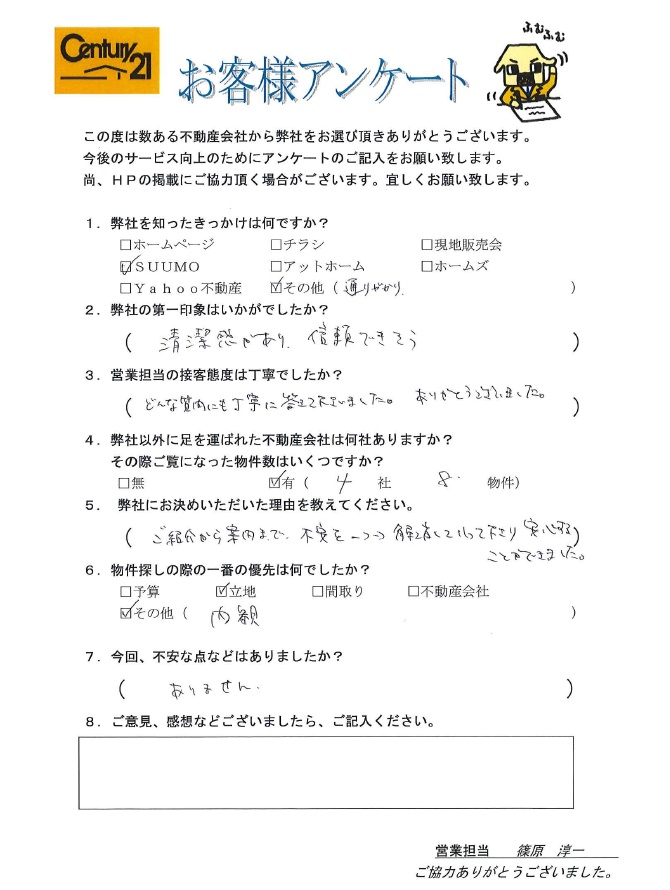 Century 21
ふむふむ
お客様アンケート
この度は数ある不動産会社から弊社をお選び頂きありがとうございます。
今後のサービス向上のためにアンケートのご記入をお願い致します。
尚、HPの掲載にご協力頂く場合がございます。宜しくお願い致します。
1．弊社を知ったきっかけは何ですか？
□ホームページ □チラシ □現地販売会
☑SUUMO □アットホーム □ホームズ
□Yahoo不動産 ☑その他（通りがかり）
2．弊社の第一印象はいかがでしたか？
（清潔感があり、信頼できそう）
3．営業担当の接客態度は丁寧でしたか？
（どんな質問にも丁寧に答えて下さいました。ありがとうございました。）
4．弊社以外に足を運ばれた不動産会社は何社ありますか？
その際ご覧になった物件数はいくつですか？
□無 ☑有（4社 8物件）
5．弊社にお決めいただいた理由を教えてください。
（ご紹介から案内まで、不安を一つ一つ解消していって下さり安心する
ことができました。）
6．物件探しの際の一番の優先は何でしたか？
□予算 ☑立地 □間取り □不動産会社
☑その他（内観）
7．今回、不安な点などはありましたか？
（ありません。）
8．ご意見、感想などございましたら、ご記入ください。
営業担当 篠原 淳一
ご協力ありがとうございました。